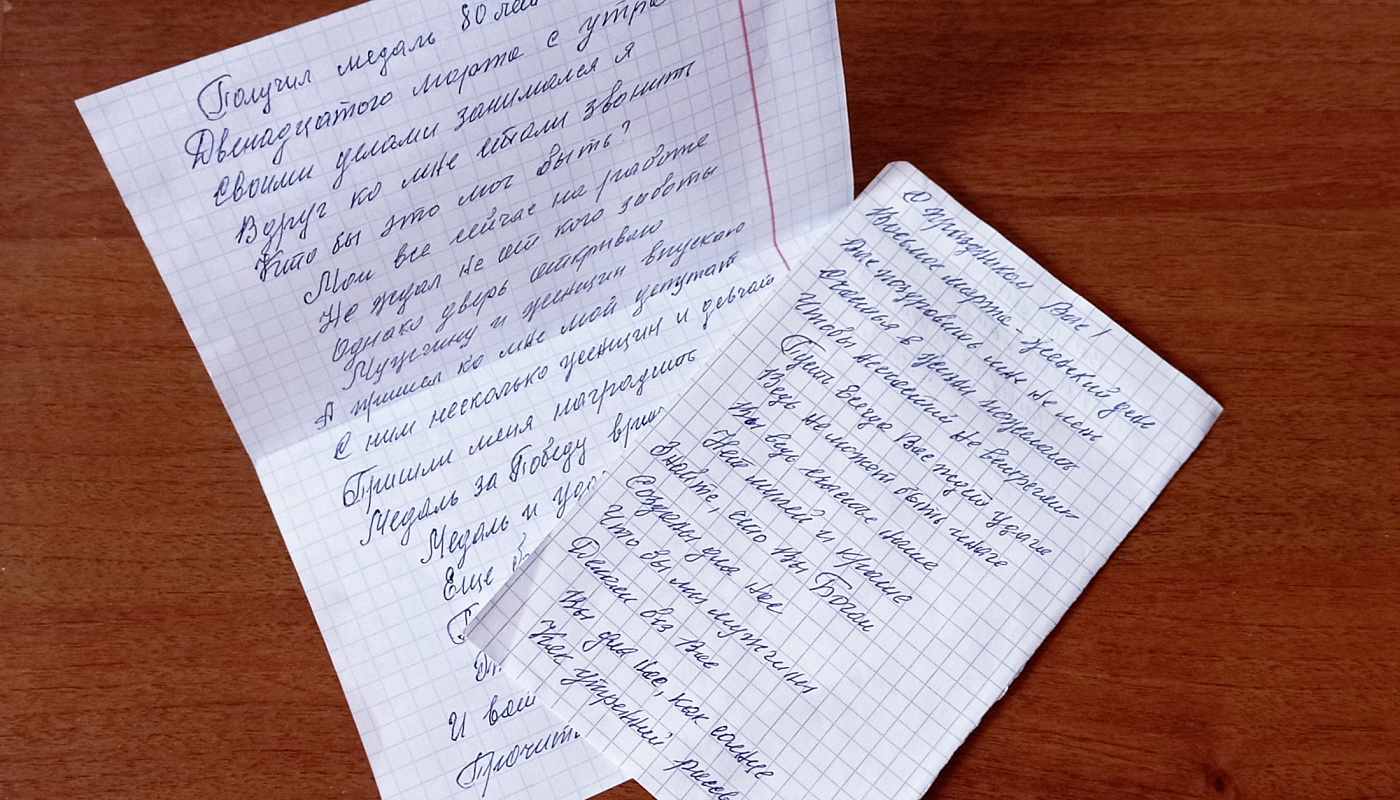 Получил медаль 80 лет
Двенадцатого марта с утра
Своими делами занимался я
Вдруг ко мне стали звонить
Кто бы это мог быть?
Мои все сейчас на работе
Не ждал не от кого заботы
Однако дверь открываю
Мужчину и женщин впускаю
А пришел ко мне мой депутат
С ним несколько женщин и девчат
Пришли меня наградить
Медаль за Победу вруч
Медаль и удо
Еще
И вот
Прочит
С праздником Вас!
Восьмое марта - женский день
Вас поздравить мне не лень
Счастья в жизни пожелать
Чтобы несчастий не встречать
Пусть всегда Вас ждут удачи
Ведь не может быть иначе
Вы ведь счастье наше
Нет милей и краше
Знайте, что Вы Богом
Созданы для нас
Что бы мы мужчины
Делали без Вас
Вы для нас, как солнце
Как утренний расв